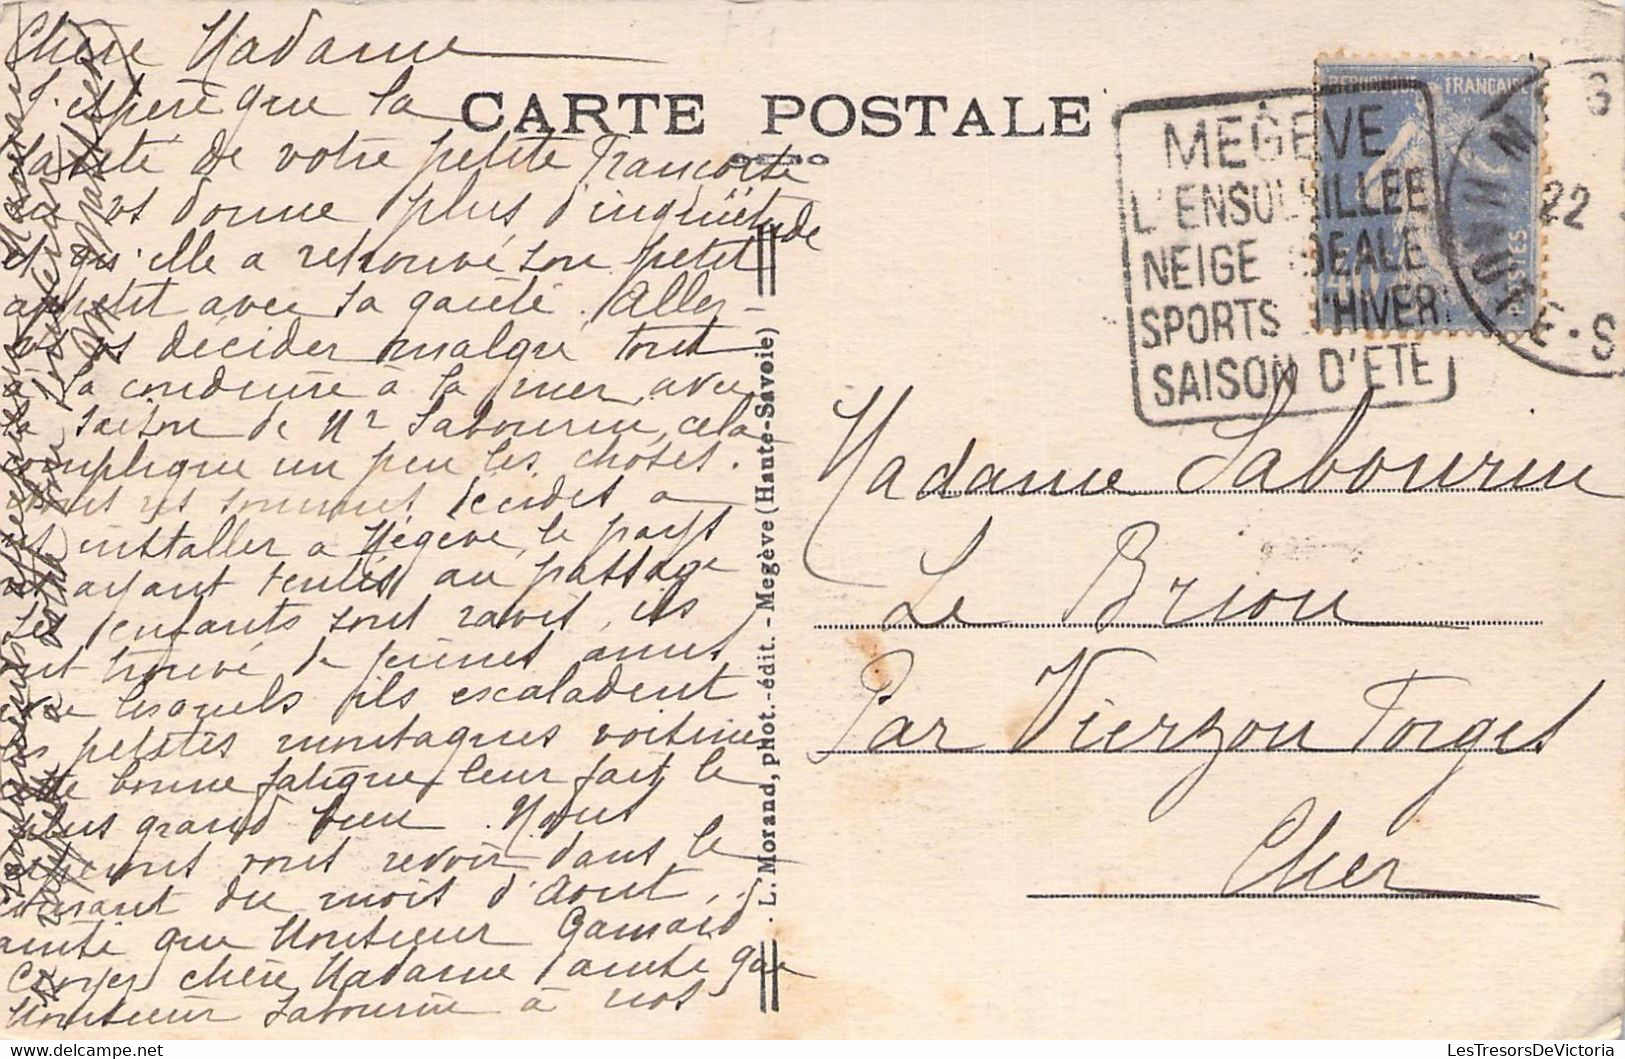 Chère Madame
J'espère que la
santé de votre petite Françoise
ne vs donne plus d'inquiétude
et qu'elle a retrouvé son petit
appétit avec sa gaieté. Allez-
vous vs décider malgré tout
à la conduire à la mer, avec
la saison de Mr Sabourin, cela
complique un peu les choses.
Nous ns sommes décidés à
ns installer à Mégève, le pays
ns ayant tentés au passage
Les enfants sont ravis, ils
ont trouvé de jeunes amis
avec lesquels ils escaladent
les petites montagnes voisines
cette bonne fatigue leur fait le
plus grand bien. Nous
pensons vous revoir dans le
courant du mois d'Août,
ainsi que Monsieur
Croyez chère Madame ainsi que
Monsieur Sabourin à nos
CARTE POSTALE
L. Morand, phot.-édit. - Megève (Haute-Savoie)
MEGÈVE
L'ENSOLEILLEE
NEIGE IDEALE
SPORTS D'HIVER
SAISON D'ETE
REPUBLIQUE FRANÇAISE
POSTES
22
E-S
Madame Sabourin
Le Brion
Par Vierzon Forges
Cher
LesTresorsDeVictoria.com